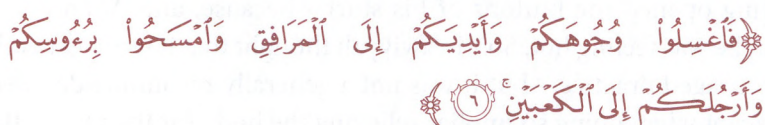 ﴿فَاغْسِلُوا۟ وُجُوهَكُمْ وَأَيْدِيَكُمْ إِلَى ٱلْمَرَافِقِ وَٱمْسَحُوا۟ بِرُءُوسِكُمْ
وَأَرْجُلَكُمْ إِلَى ٱلْكَعْبَيْنِ ۚ ٦﴾